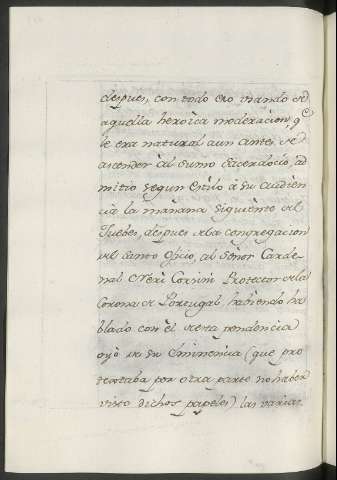 despues, con todo eso usando de
aquella heroica moderacion, q.e
le era natural aun antes de
ascender àl Sumo Sacerdocio, ad
mitio segun Estilo à su audien
cia la mañana siguiente del
Jueves, despues dela congregacion
del Santo Oficio, al Señor Carde-
nal Neri Corsini Protector dela
Corona de Portugal habiendo ha
blado con èl de esta pendencia
oyò de su Eminencia (que pro
textaba por otra parte no haber
visto dichos papeles) las varias